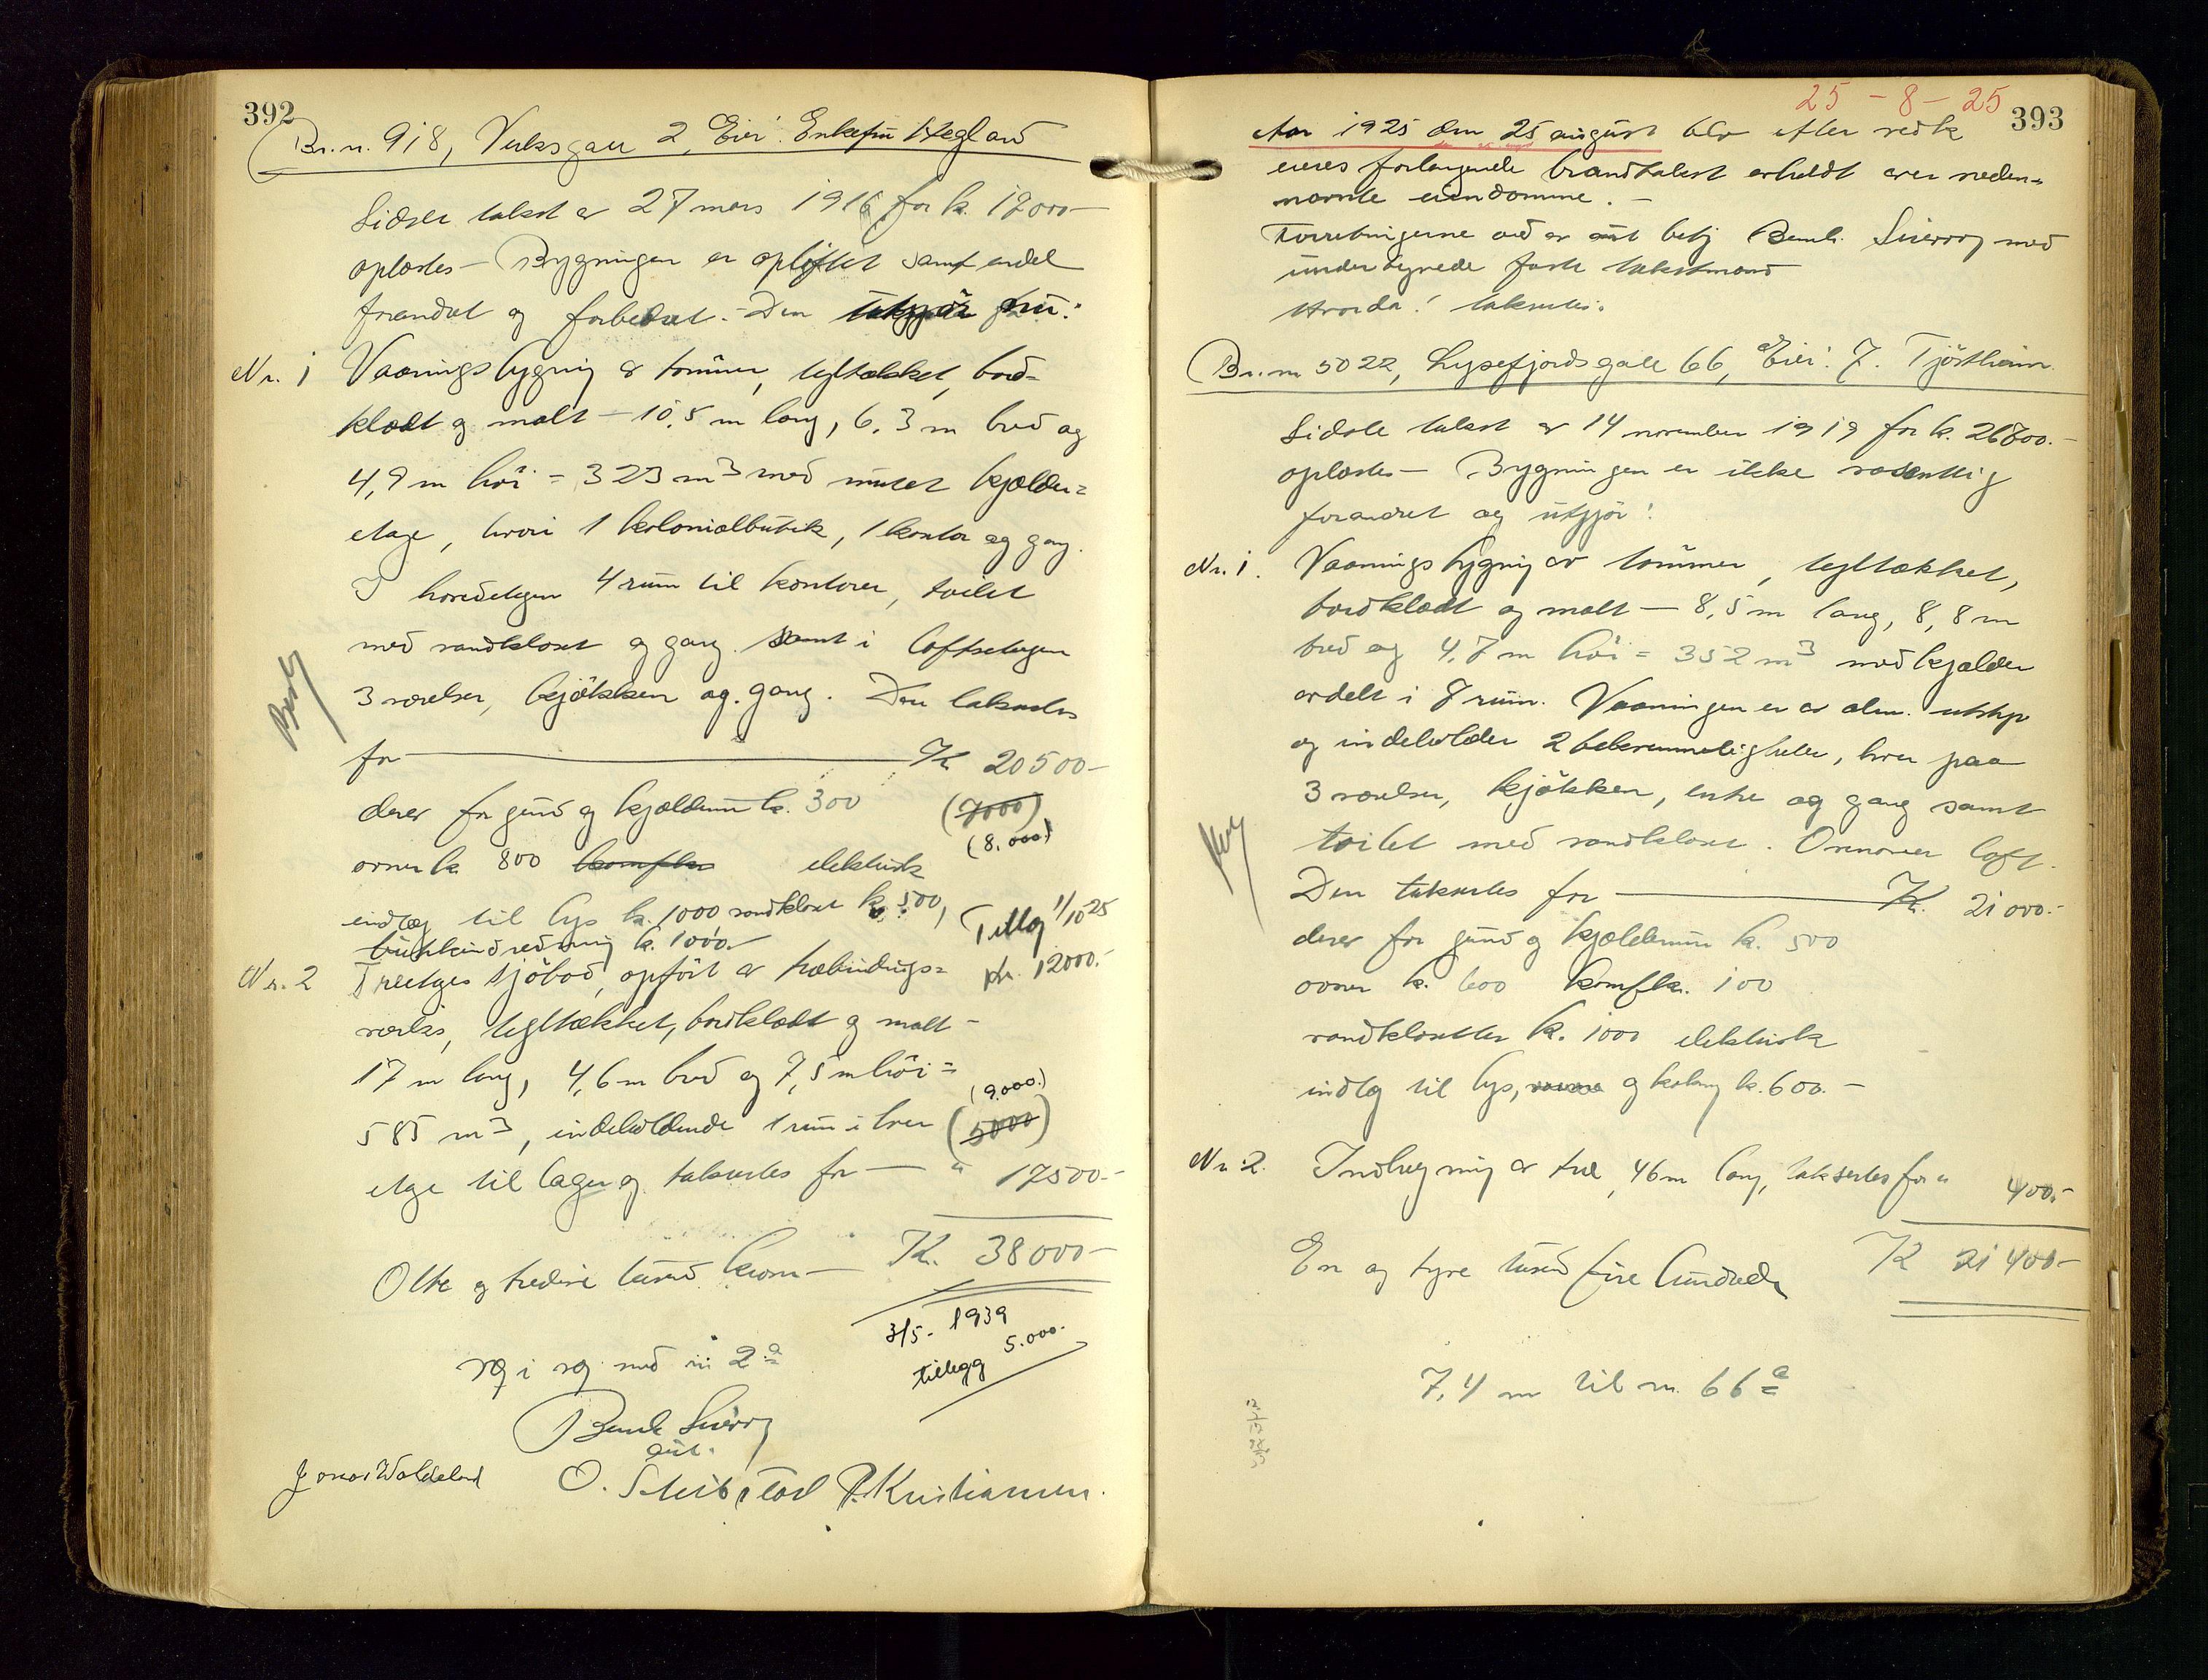 392
Br.n. 918, Valbsgate 2, Eier: Enkefru Hegland
Sidste takst av 27 mars 1916 for k. 12000-
oplæstes - Bygningen er opløftet samt endel
forandret og forbedret. - Den utgjør nu:
Nr. 1 Vaaningsbygning av tømmer, tegltækket, bord-
klædt og malt - 10,5 m lang, 6,3 m bred og
4,9 m høi = 323 m3 med muret kjelder-
etage, hvori 1 kolonialbutik, 1 kontor og gang.
I hovedetagen 4 rum til kontorer, toilet
med vandkloset og gang. samt i loftsetagen
3 værelser, kjøkken og gang. Den takseres
for Kr. 20500-
derav for grund og kjældermur k. 300 (7000)
(8.000)
ovner k. 800 komfkr elektrisk
indlæg til lys k. 1000 vandkloset k. 500,
butikindredning k. 1000.
Tillæg 1/10 25
Kr. 12000.-
Nr. 2 Treetages sjöbod, opført av træbindings-
verk, tegltækket, bordklædt og malt -
17 m lang, 4,6 m bred og 7,5 m høi =
(9.000.)
585 m3, indeholdende 1 rum i hver (5000)
etage til lager og takseres for - " 17500.-
Otte og tredive tusind kroner - Kr. 38000-
3/5 - 1939
tillegg 5.000.-
væg i væg med nr 2a
Bernh. Sverdrup
aut.
Jonas Waldeland O. Skibstad P. Kristiansen.
25 - 8 - 25 393
Aar 1925 den 25 august blev efter vedk
eieres forlangende brandtakst avholdt over neden-
nævnte eiendomme. -
Forretningerne ved aut betj Bernh. Sverdrup med
undertegnede faste takstmænd
Hvorda! takseres:
Br.nr 5022, Lysefjordsgate 66, Eier: J. Tjøstheim
Sidste takst av 14 november 1919 for k. 26800.-
oplæstes - Bygningen er ikke væsentlig
forandret og utgjør:
Nr. 1. Vaaningsbygning av tømmer, tegltækket,
bordklædt og malt - 8,5 m lang, 8,8 m
bred og 4,7 m høi = 352 m3 med kjælder
avdelt i 8 rum. Vaaningen er av alm. utstyr
og indeholder 2 bekvemmeligheter, hver paa
3 værelser, kjøkken, entre og gang samt
toilet med vandkloset. Ovenover loft.
Den takseres for Kr. 21000.-
derav for grund og kjældermur k. 500
ovner k. 600 komfkr. 100
vandklosetter k. 1000 elektrisk
indlæg til lys, og kokning k. 600. -
Nr. 2. Indhegning av træ, 46 m lang, takseres for " 400.-
En og tyve tusind fire hundrede K 21400-
7,4 m til nr. 66a